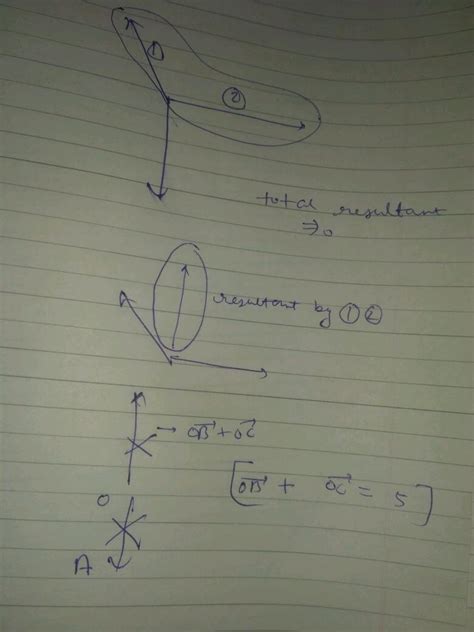 ①
②
total resultant
⇒0
resultant by ① ②
→ OB⃗ + OC⃗
[OB⃗ + OC⃗ = 5]
O
A